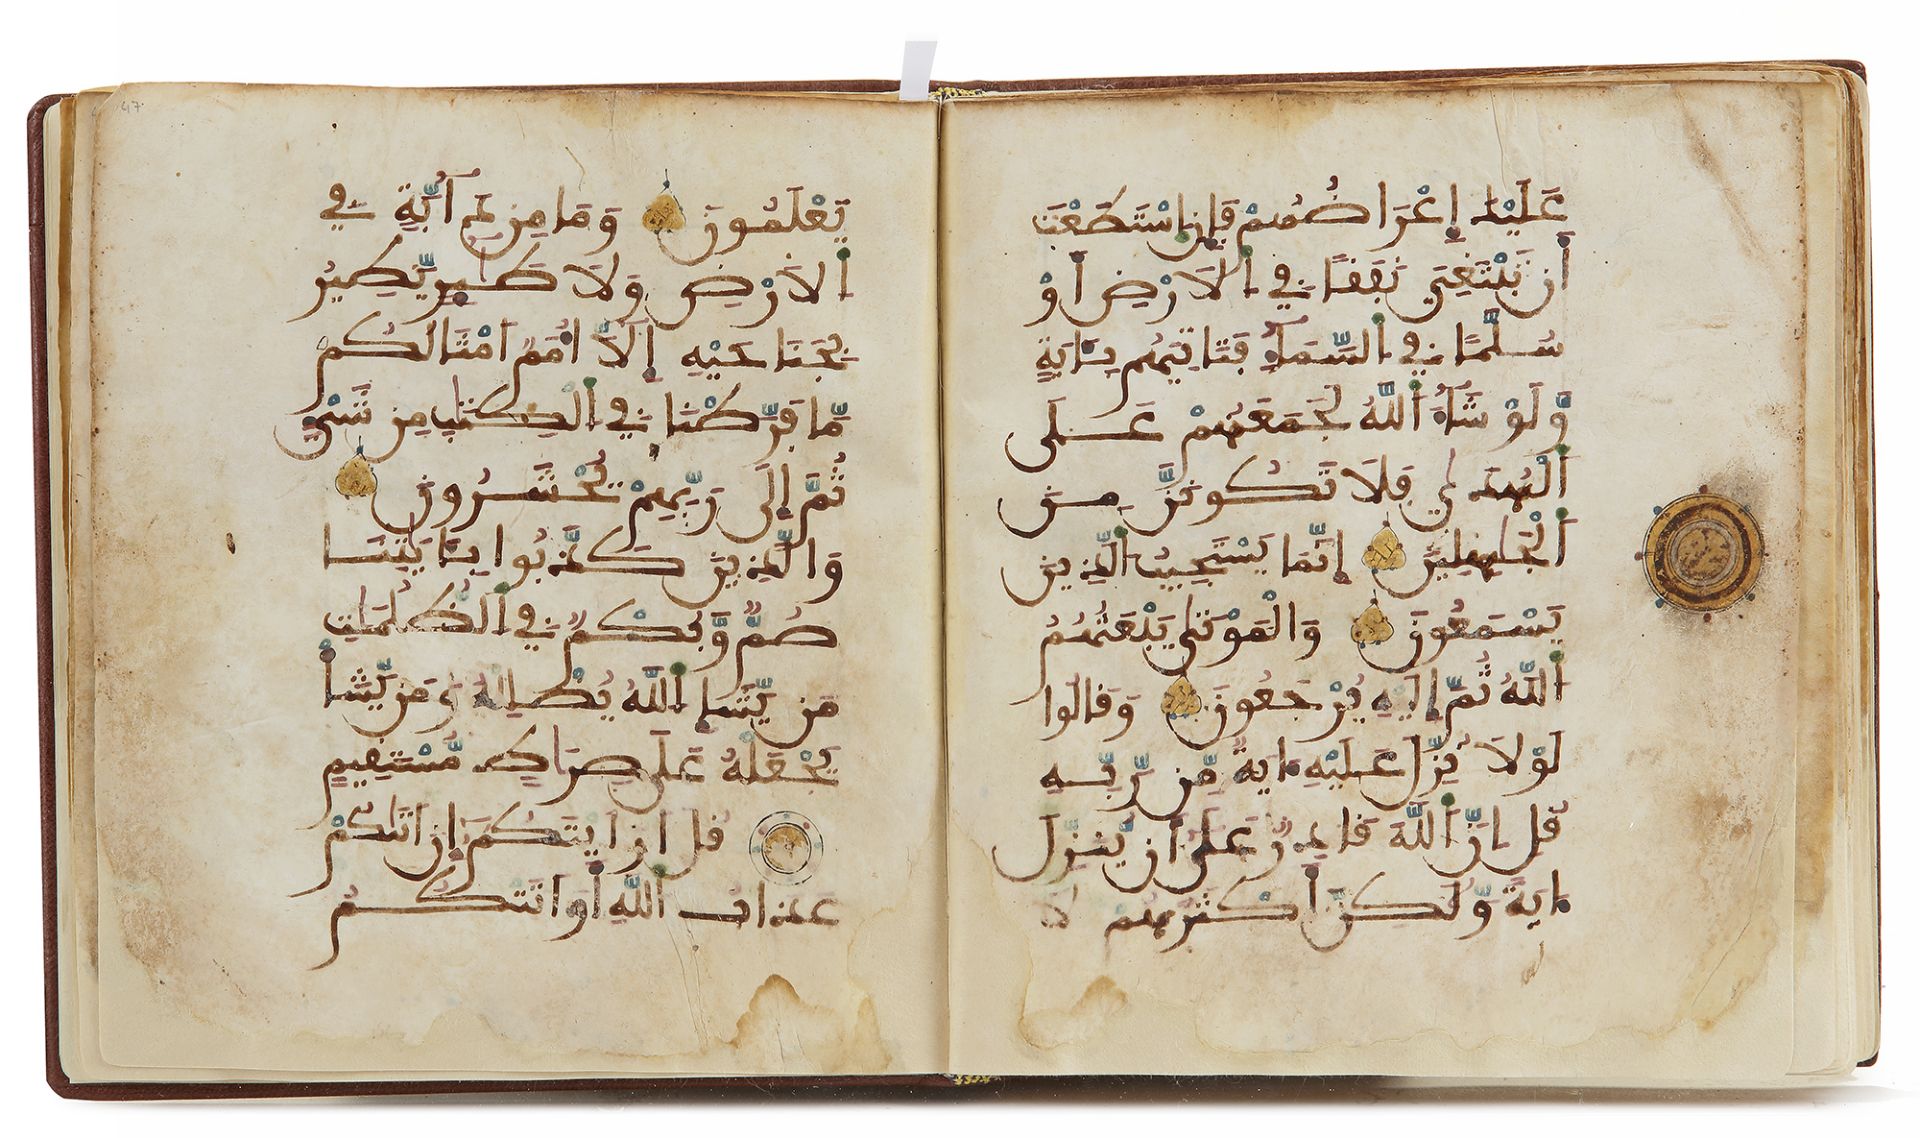 عَلَيْكَ إِعْرَاضُهُمْ فَإِنِ اسْتَطَعْتَ
أَن تَبْتَغِيَ نَفَقًا فِي الَارْضِ أَوْ
سُلَّمًا فِي السَّمَآءِ فَتَاتِيَهُم بِـَٔايَةٍ
وَلَوْ شَآءَ اللَّهُ لَجَمَعَهُمْ عَلَى
الْهُدٰى فَلَا تَكُونَنَّ مِنَ
الْجَٰهِلِينَ إِنَّمَا يَسْتَجِيبُ الَّذِينَ
يَسْمَعُونَ وَالْمَوْتٰى يَبْعَثُهُمُ
اللَّهُ ثُمَّ إِلَيْهِ يُرْجَعُونَ وَقَالُوا
لَوْلَا نُزِّلَ عَلَيْهِ ءَايَةٌ مِّن رَّبِّهِ
قُلِ اِنَّ اللَّهَ قَادِرٌ عَلَىٰ أَن يُنَزِّلَ
ءَايَةً وَّلَٰكِنَّ أَكْثَرَهُمْ لَا
47
يَعْلَمُونَ وَمَا مِن دَآبَّةٍ فِي
الَارْضِ وَلَا طَٰٓئِرٍ يَّطِيرُ
بِجَنَاحَيْهِ إِلَّآ أُمَمٌ اَمْثَالُكُم
مَّا فَرَّطْنَا فِي الْكِتَٰبِ مِن شَيْءٍ
ثُمَّ إِلَىٰ رَبِّهِمْ يُحْشَرُونَ
وَالَّذِينَ كَذَّبُوا بِـَٔايَٰتِنَا
صُمٌّ وَّبُكْمٌ فِي الظُّلُمَٰتِ
مَن يَّشَإِ اللَّهُ يُضْلِلْهُ وَمَن يَّشَأْ
يَجْعَلْهُ عَلَىٰ صِرَاطٍ مُّسْتَقِيمٍ
قُلَ اَرَٰيْتَكُمُ إِنَ اَتٰىكُمْ
عَذَابُ اللَّهِ أَوَ اَتَتْكُمُ